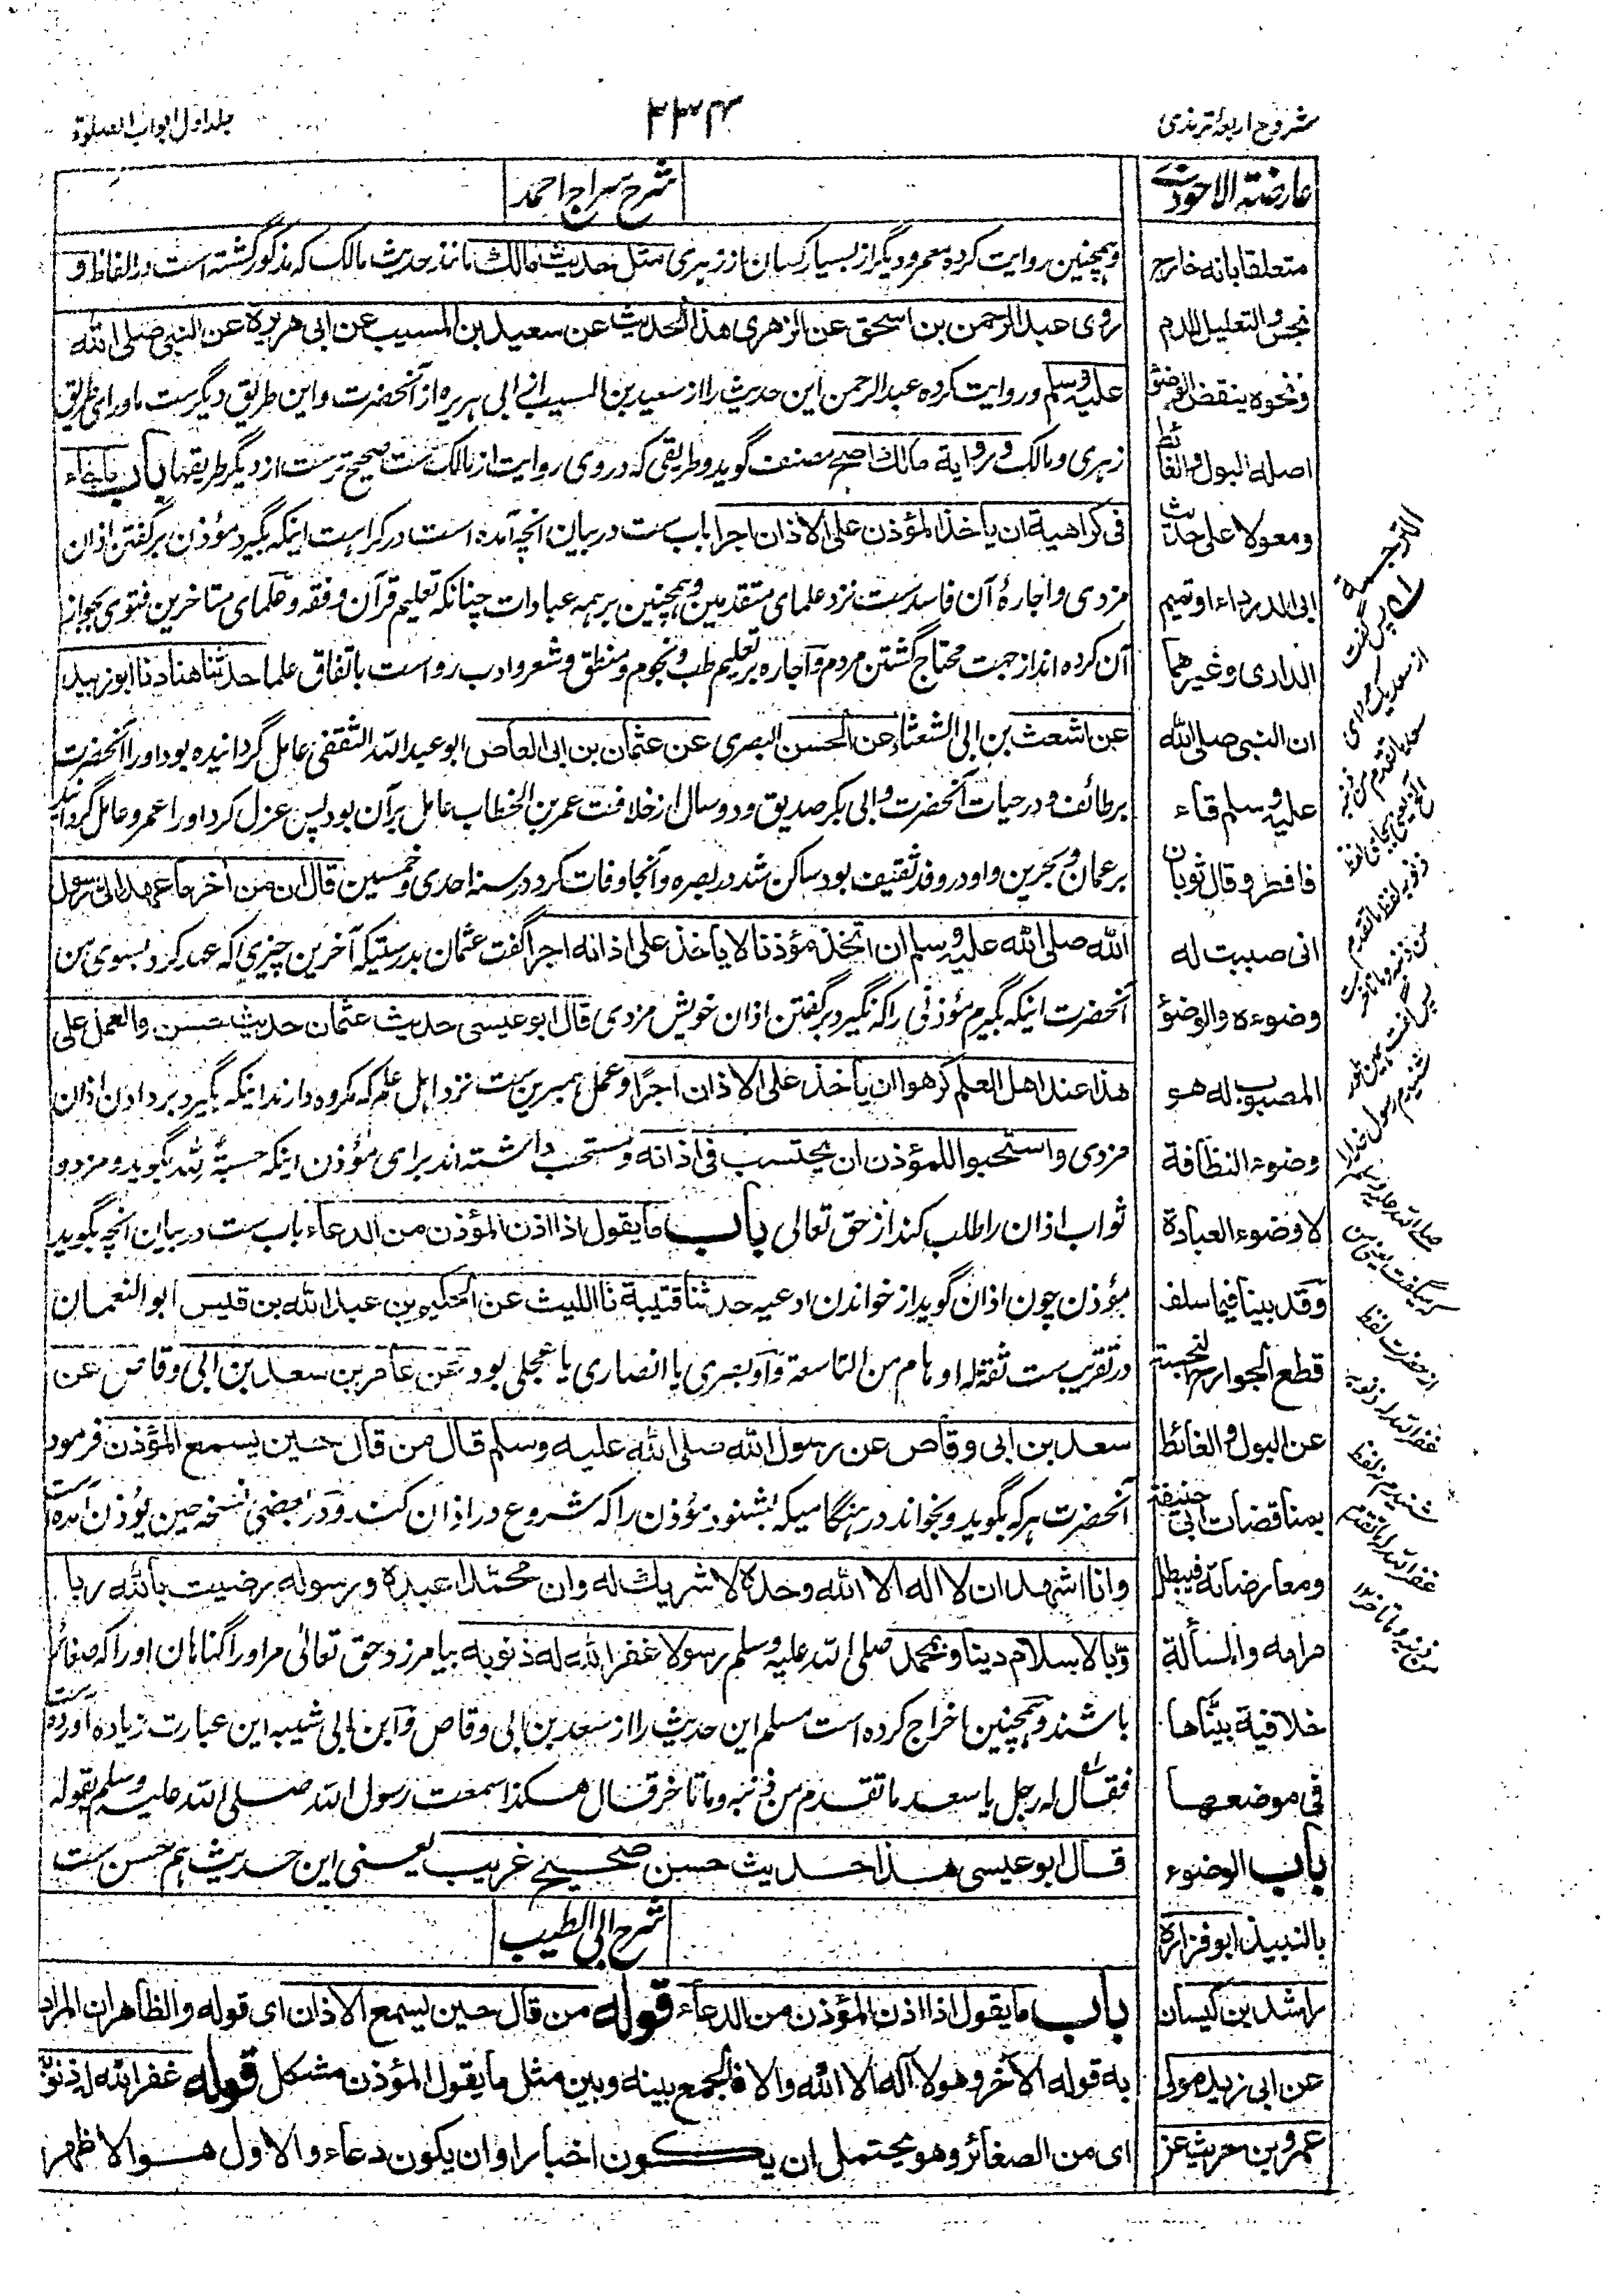 شروح اربعهٔ ترمذی
۲۳۴
جلد اول ابواب الصلوة
عارضة الاحوذی
متعلقا بانه خارج
نجس والتعلیل للدم
ونحوه ینقض الوضوء
اصله البول والغائط
ومعولا علی حدیث
ابی الدرداء او تمیم
الداری وغیرهما
ان النبی صلی الله
علیه وسلم قاء
فافطر وقال ثوبان
انی صببت له
وضوءه والوضوء
المصبوب له هو
وضوء النظافة
لا وضوء العبادة
وقد بینا فیما سلف
قطع الجوارح النجسة
عن البول والغائط
بمناقضات ابی حنیفة
ومعارضاته فیبطل
مرامه والمسألة
خلافیة بیناها
فی موضعها
باب الوضوء
بالنبیذ ابو فزارة
راشد بن کیسان
عن ابی زید مولی
عمرو بن حریث عن
شرح سراج احمد
وهمچنین روایت کرده معمر و دیگر از بسیار کسان از زهری مثل حدیث مالک مانند حدیث مالک که مذکور گشته است در الفاظ و
روی عبد الرحمن بن اسحق عن الزهری هذا الحدیث عن سعید بن المسیب عن ابی هریرة عن النبی صلی الله
علیه وسلم و روایت کرده عبد الرحمن این حدیث را از سعید بن المسیب از ابی هریره از آنحضرت و این طریق دیگرست ماورای طریق
زهری و مالک وروایة مالک اصح مصنف گوید و طریقی که در وی روایت از مالک ست صحیح ترست از دیگر طریقها باب ما جاء
فی کراهیة ان یاخذ المؤذن علی الاذان اجرا باب ست در بیان آنچه آمده است در کراهت اینکه بگیرد مؤذن بر گفتن اذان
مزدی و اجارهٔ آن فاسدست نزد علمای متقدمین و همچنین بر همه عبادات چنانکه تعلیم قرآن و فقه و علمای متاخرین فتوی بجواز
آن کرده اند از جهت محتاج گشتن مردم و اجاره بر تعلیم طب و نجوم و منطق و شعر و ادب رواست باتفاق علما حدثنا هناد نا ابو زبید
عن اشعث بن ابی الشعثاء عن الحسن البصری عن عثمان بن ابی العاص ابو عبد الله الثقفی عامل گردانیده بود او را آنحضرت
بر طائف و در حیات آنحضرت و ابی بکر صدیق و دو سال از خلافت عمر بن الخطاب عامل بر آن بود پس عزل کرد او را عمر و عامل گردانید
بر عمان و بحرین و او در وفد ثقیف بود ساکن شد در بصره و آنجا وفات کرد در سنه احدی و خمسین قال ان من اخر ما عهد الی رسول
الله صلی الله علیه وسلم ان اتخذ مؤذنا لا یاخذ علی اذانه اجرا گفت عثمان بدرستیکه آخرین چیزی که عهد کرد بسوی من
آنحضرت اینکه بگیرم مؤذنی را که نگیرد بر گفتن اذان خویش مزدی قال ابو عیسی حدیث عثمان حدیث حسن والعمل علی
هذا عند اهل العلم کرهوا ان یاخذ علی الاذان اجرًا و عمل بهمین ست نزد اهل علم که مکروه دارند اینکه بگیرد بر دادن اذان
مزدی واستحبوا للمؤذن ان یحتسب فی اذانه و مستحب داشته اند برای مؤذن اینکه حسبةً لله بگوید و مزد و
ثواب اذان را طلب کند از حق تعالی باب ما یقول اذا اذن المؤذن من الدعاء باب ست در بیان آنچه بگوید
مؤذن چون اذان گوید از خواندن ادعیه حدثنا قتیبة نا اللیث عن الحکیم بن عبد الله بن قیس ابو النعمان
در تقریب ست ثقة له اوهام من التاسعة و او بصری یا انصاری یا عجلی بود عن عامر بن سعد بن ابی وقاص عن
سعد بن ابی وقاص عن رسول الله صلی الله علیه وسلم قال من قال حین یسمع المؤذن فرمود
آنحضرت هر که بگوید و بخواند در هنگامیکه بشنود مؤذن را که شروع در اذان کند و در بعضی نسخه حین یؤذن آمده است
وانا اشهد ان لا اله الا الله وحده لا شریک له وان محمدا عبده ورسوله رضیت بالله ربا
وبالاسلام دینا وبمحمد صلی الله علیه وسلم رسولا غفر الله له ذنوبه بیامرزد حق تعالی مر او را گناهان او را که صغائر
باشند و همچنین اخراج کرده است مسلم این حدیث را از سعد بن ابی وقاص و ابن ابی شیبه این عبارت زیاده آورده است
فقال له رجل یا سعد ما تقدم من ذنبه وما تاخر قال هکذا سمعت رسول الله صلی الله علیه وسلم یقوله
قال ابو عیسی هذا حدیث حسن صحیح غریب یعنی این حدیث هم حسن ست
شرح ابی الطیب
باب ما یقول اذا اذن المؤذن من الدعاء قوله من قال حین یسمع الاذان ای قوله والظاهر ان المراد
به قوله الآخر وهو لا اله الا الله والا فالجمع بینه وبین مثل ما یقول المؤذن مشکل قوله غفر الله له ذنوبه
ای من الصغائر وهو یحتمل ان یکون اخبارا وان یکون دعاء والاول هو الاظهر
الترجمة
ای پس گفت
از سعد یک مردی
شنیدم رسول خدا را
صلی الله علیه وسلم
از حضرت لفظ